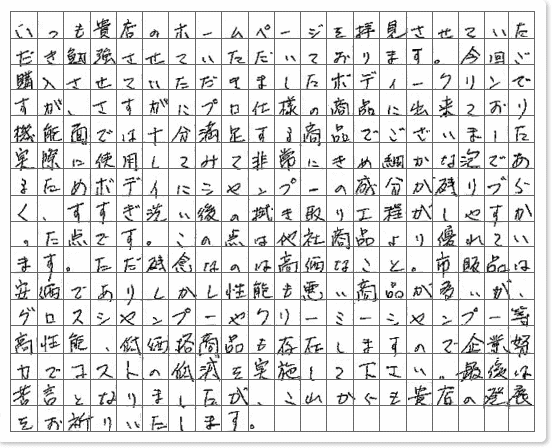 いつも貴店のホームページを拝見させていた
だき勉強させていただいております。今回ご
購入させていただきましたボディークリンで
すが、さすがにプロ仕様の商品に出来ており
機能面では十分満足する商品でございました
実際に使用してみて非常にきめ細かな泡であ
るためボディにシャンプーの成分が残りづら
く、すすぎ洗い後の拭き取り工程がしやすか
った点です。この点は他社商品より優れてい
ます。ただ残念なのは高価なこと。市販品は
安価でありしかし性能も悪い商品が多いが、
グロスシャンプーやクリーミーシャンプー等
高性能、低価格商品も存在しますので企業努
力でコストの低減を実施して下さい。最後は
苦言となりましたが、これからも貴店の発展
をお祈りいたします。